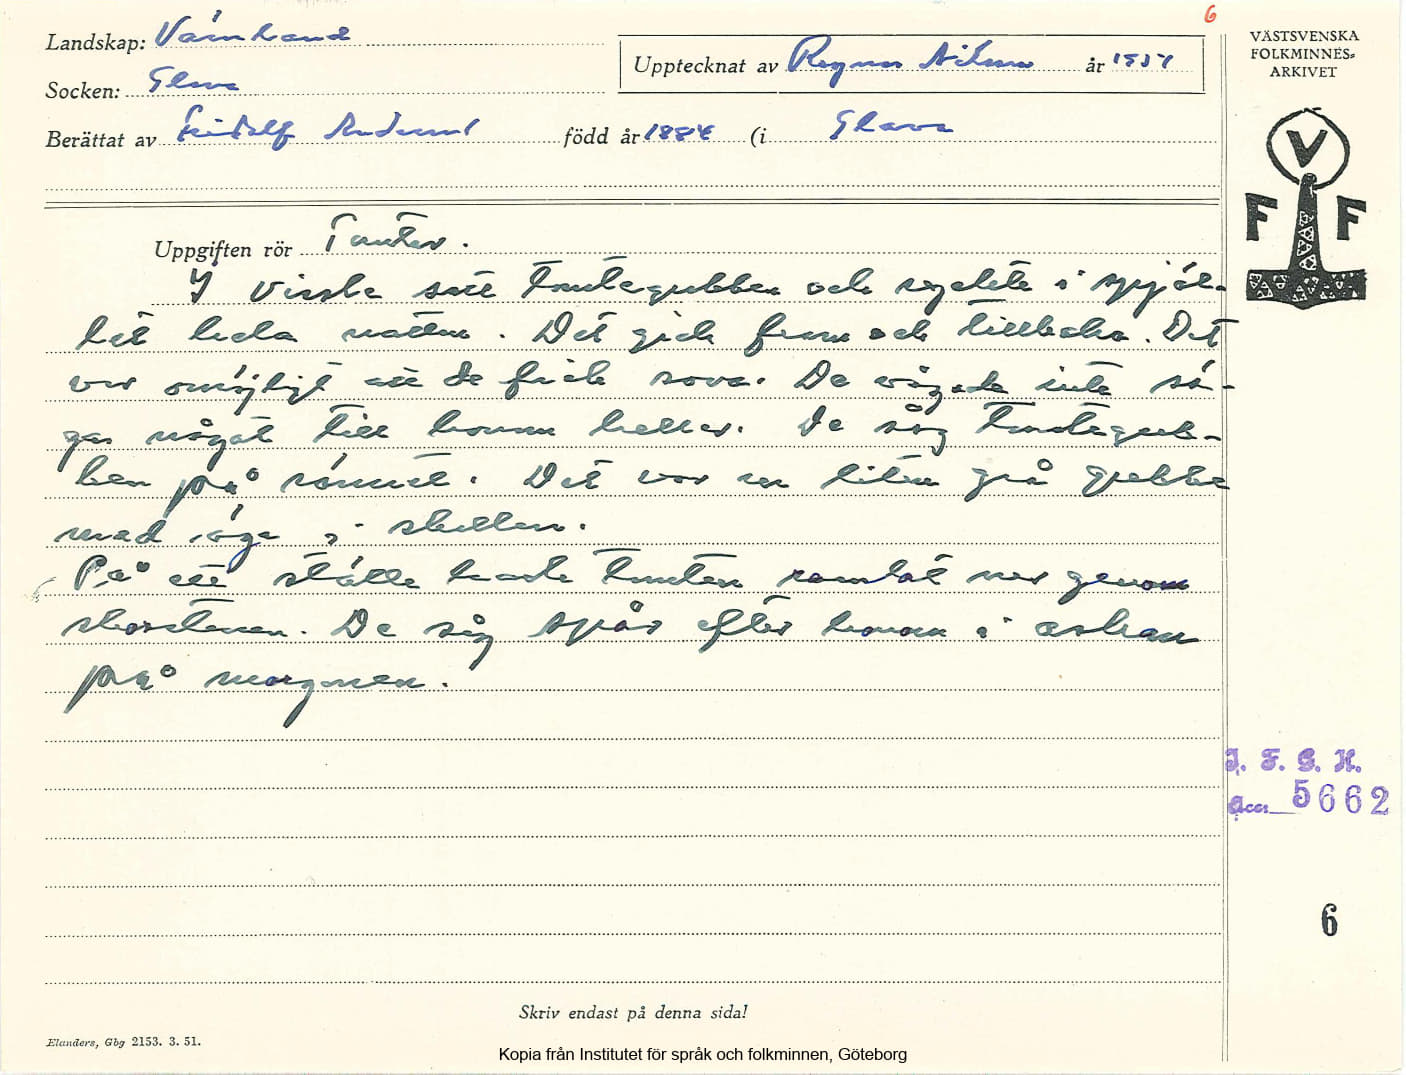 6
Landskap: Värmland
Upptecknat av Ragnar Nilsson år 1957
Socken: Glava
Berättat av Fridolf Anderssl född år 1884 (i Glava
VÄSTSVENSKA
FOLKMINNES-
ARKIVET
V
F F
Uppgiften rör Tomten.
I Vissle satt tomtegubben och ryckte i spjäl-
let hela natten. Det gick fram och tillbaka. Det
var omöjligt att de fick sova. De vågade inte sä-
ga något till honom heller. De såg tomtegub-
ben på rummet. Det var en liten grå gubbe
med öga i skallen.
På ett ställe hade tomten ramlat ner genom
skorstenen. De såg spår efter honom i askan
på morgonen.
I. F. G. H.
Acc. 5662
6
Skriv endast på denna sida!
Elanders, Gbg 2153. 3. 51.
Kopia från Institutet för språk och folkminnen, Göteborg